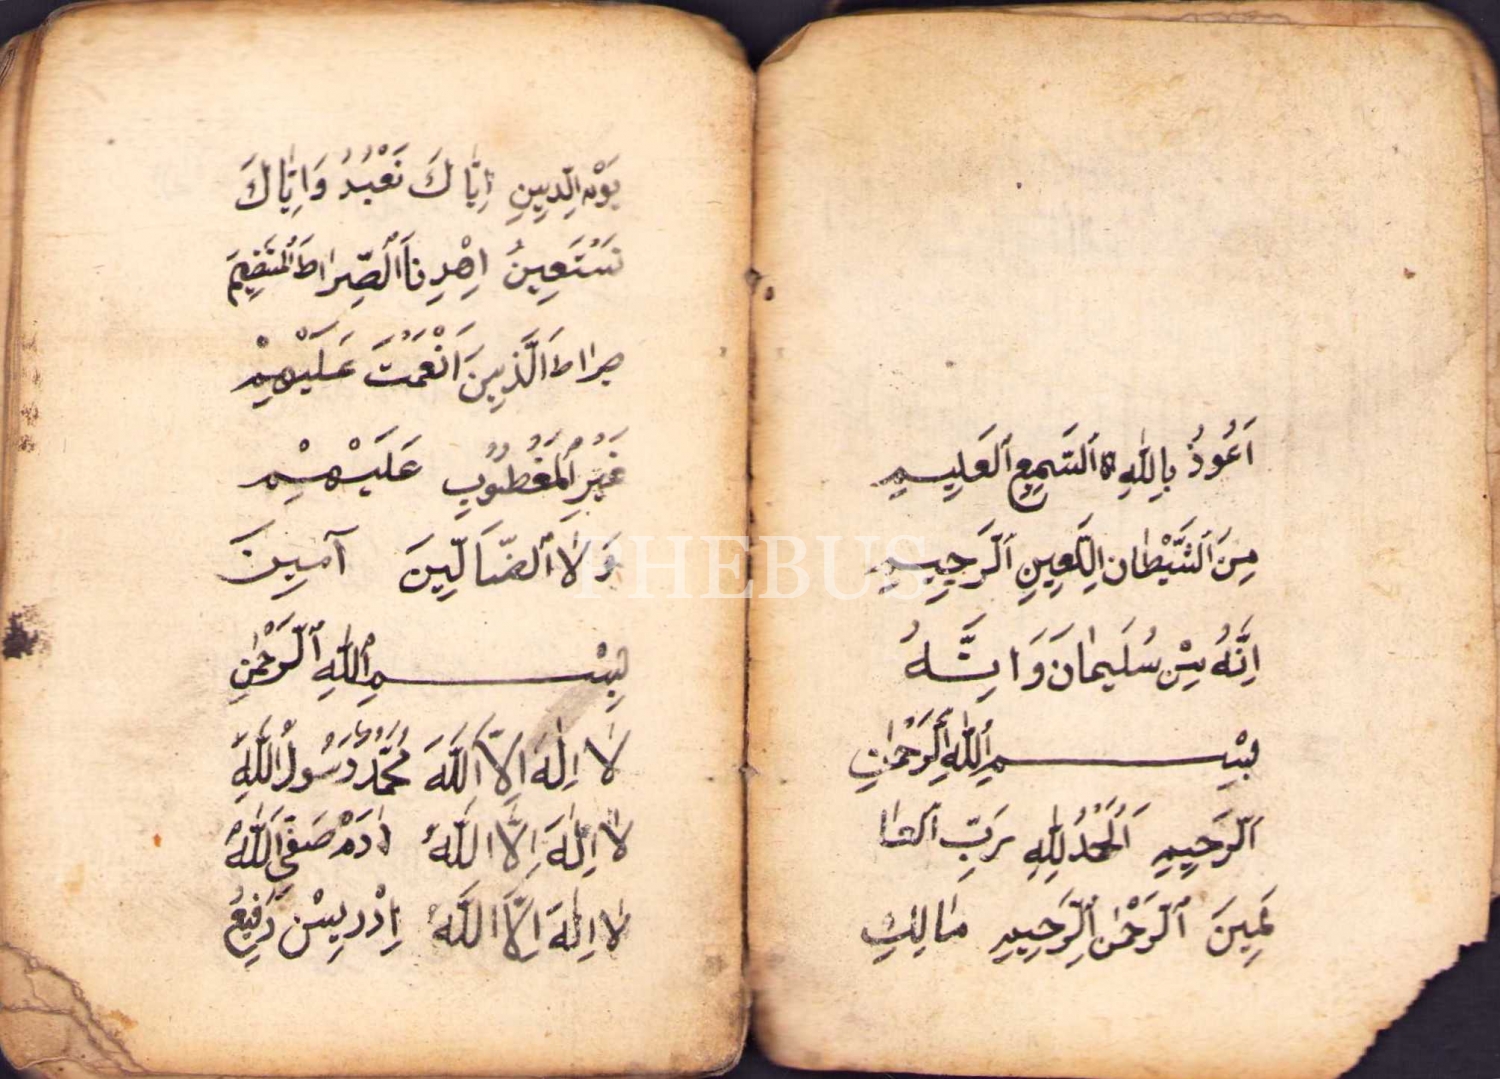 اَعُوذُ بِاللّٰهِ ٱلسَّمِيعِ ٱلعَلِيمِ
مِنَ ٱلشَّيْطٰانِ اللَّعِينِ ٱلرَّجِيمِ
اِنَّهُ مِنْ سُلَيمٰانَ وَاِنَّهُ
بِسْمِ ٱللّٰهِ ٱلرَّحْمٰنِ
ٱلرَّحِيمِ اَلْحَمْدُ لِلّٰهِ رَبِّ ٱلعَا
لَمِينَ ٱلرَّحْمٰنِ ٱلرَّحِيمِ مٰالِكِ
يَوْمِ الدِّينِ اِيّٰاكَ نَعْبُدُ وَاِيّٰاكَ
نَسْتَعِينُ اِهْدِنَا ٱلصِّرٰاطَ ٱلْمُسْتَقِيمَ
صِرٰاطَ ٱلَّذِينَ اَنْعَمْتَ عَلَيْهِمْ
غَيْرِ ٱلْمَغْطُوبِ عَلَيْهِمْ
وَلَا ٱلضَّالِّينَ آمِينَ
بِسْمِ ٱللّٰهِ ٱلرَّحْمٰنِ
لَا اِلٰهَ اِلَّا اللّٰهَ مُحَمَّدُ رَسُولُ اللّٰهِ
لَا اِلٰهَ اِلَّا اللّٰهُ اٰدَمْ صَفِىَ اللّٰهُ
لَا اِلٰهَ اِلَّا اللّٰهُ اِدْرِيسْ رَفِيعُ
PHEBUS